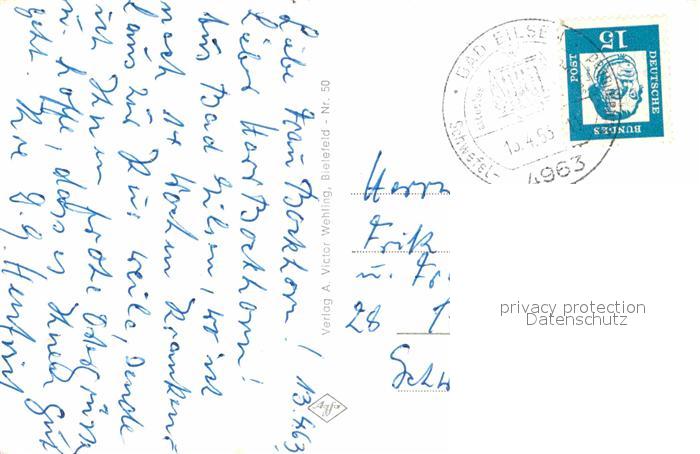 Liebe Frau Bockhorn!
Lieber Herr Bockhorn!
13.4.63
Aus Bad Eilsen, wo ich
nach 14 Wochen Kranken-
haus zur Kur weile, sende
ich Ihnen frohe Ostergrüße
u. hoffe, dass es Ihnen gut
geht. Ihre
Verlag A. Victor Wehling, Bielefeld - Nr. 50
BAD EILSEN
Schwefel-
4963
15
DEUTSCHE
BUNDES
POST
Herrn
u. Fr
28
privacy protection
Datenschutz